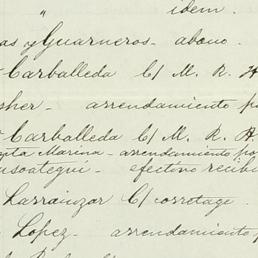 " idem.
as y Guarneros - abono.
Carballeda C/ M. R. H
sher - arrendamiento po
Carballeda C/ M. R. H
gita Marina - arrendamiento po
usoategui - efectivo recibi
Larrainzar C/ corretage.
Lopez - arrendamiento p